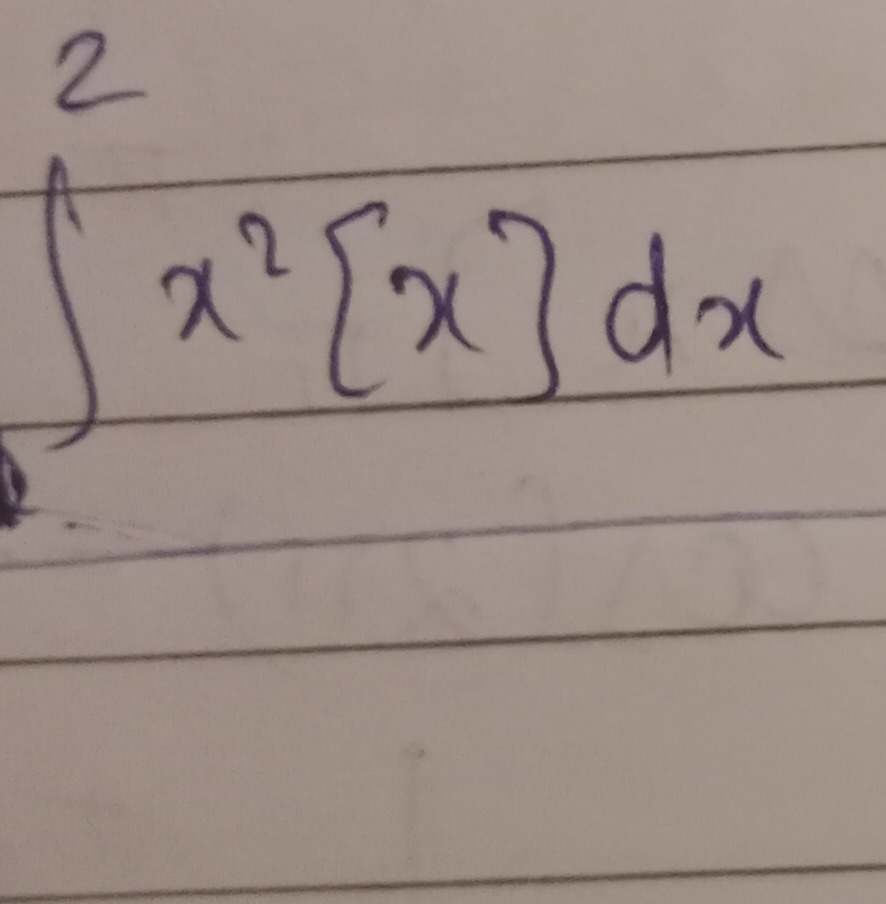 2
∫ x² [x] dx